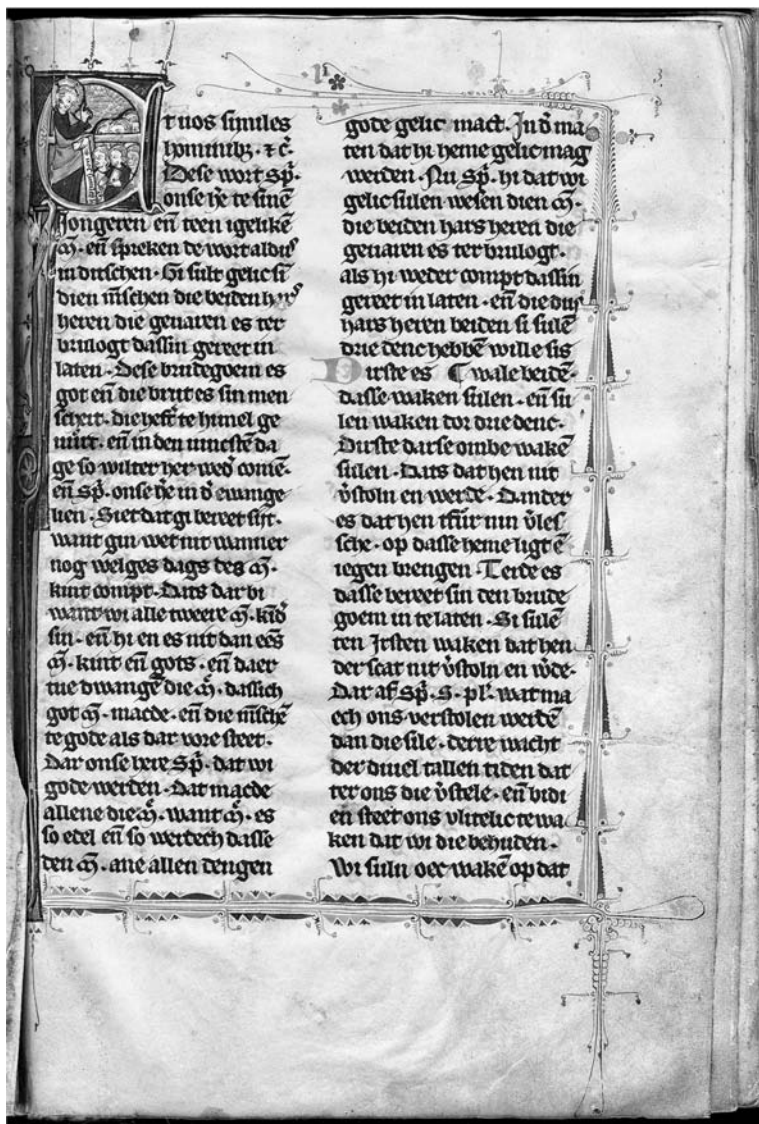 Et uos similes
hominibꝫ · ⁊ c̄.
Dese wort sp̄.
onse h̄e te sinē
Jongeren en̄ teen igelikē
m̄ · en̄ spreken de wort aldus
in dutschen · Gi sult gelic si
dien m̄schen die beiden hars
heren die geuaren es ter
brulogt dassin gereet in
laten · Dese brudegoem es
got en̄ die brut es sin men
scheit · die heft te himel ge
uurt · en̄ in den iuncsten da
ge so wilter her wed̄ comē ·
en̄ sp̄ · onse h̄e in d̄ ewange
lien · Siet dat gi bereet sijt ·
want gin wet nit wannier
nog welges dags des m̄ ·
kint compt · Dats dar bi
want wi alle tweere m̄ · kīd̄
sin · en̄ hi en es nit dan eēs
m̄ · kint en̄ gots · en̄ daer
tue dwangē die m̄ · dassich
got m̄ · macde · en̄ die m̄schē
te gode als dar vore steet ·
Dar onse here sp̄ · dat wi
gode werden · Dat macde
allene die m̄ · want m̄ · es
so edel en̄ so werdech dasse
den m̄ · ane allen dengen
gode gelic mact · Jn d̄ ma
ten dat hi heme gelic mag
werden · Nu sp̄ · hi dat wi
gelic sulen wesen dien m̄ ·
die beiden hars heren die
geuaren es ter brulogt ·
als hi weder compt dassin
gereet in laten · en̄ die dus
hars heren beiden si sulē
drie denc hebbē wille sis
Dirste es ¶ wale beidē ·
dasse waken sulen · en̄ su
len waken dor drie denc ·
Dirste darse ombe wakē
sulen · Dats dat hen nit
v̄stoln en werde · Dander
es dat hen tfur nin v̄les
sche · op dasse heme ligt ē
iegen brengen · Terde es
dasse bereet sin den brude
goem in te laten · Si sulē
ten Jrsten waken dat hen
der scat nit v̄stoln en w̄de ·
Dar af sp̄ · S · pl' · wat ma
ech ons verstolen werdē
dan die sile · derre wacht
der diuel tallen tiden dat
ter ons die v̄stele · en̄ bidi
en steet ons vlitelic te wa
ken dat wi die behuden ·
Wi suln oec wakē op dat